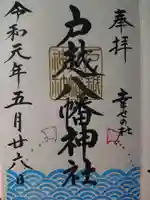 奉拝
幸せの社
戸越八幡神社
令和元年五月廿六日